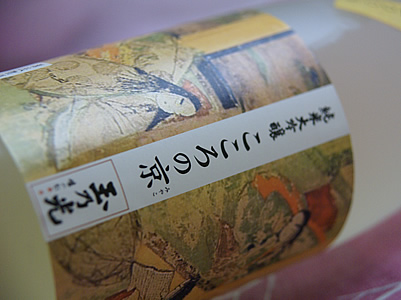 純米大吟醸
こころの京
みやこ
玉乃光